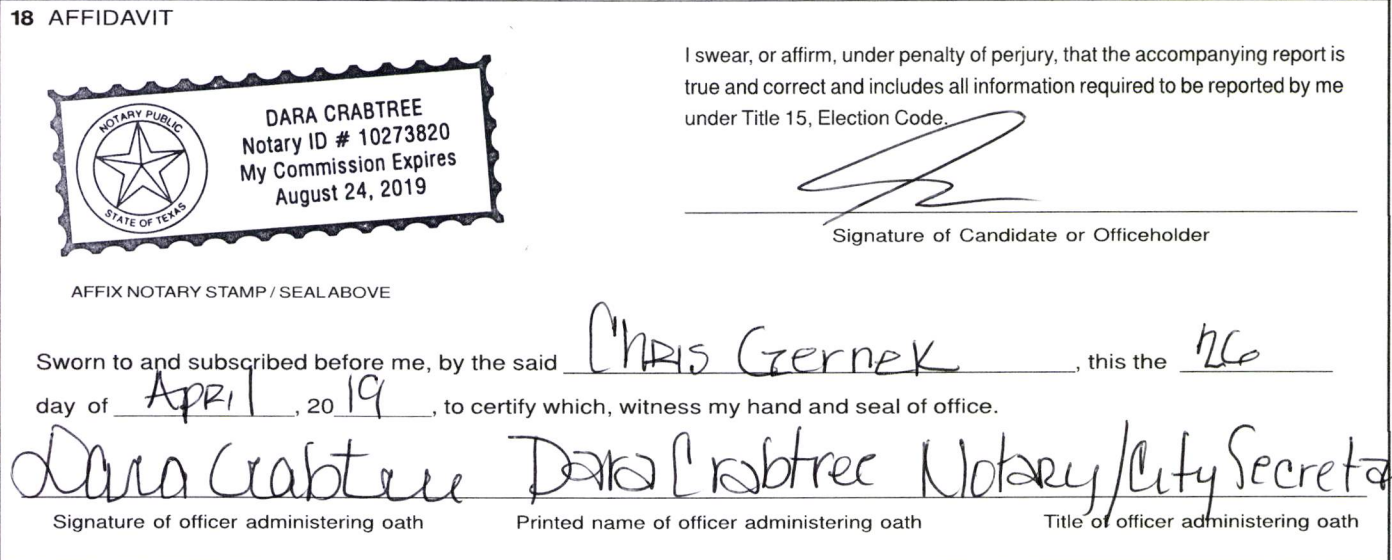 18 AFFIDAVIT
NOTARY PUBLIC
STATE OF TEXAS
DARA CRABTREE
Notary ID # 10273820
My Commission Expires
August 24, 2019
I swear, or affirm, under penalty of perjury, that the accompanying report is
true and correct and includes all information required to be reported by me
under Title 15, Election Code.
Signature of Candidate or Officeholder
AFFIX NOTARY STAMP / SEAL ABOVE
Sworn to and subscribed before me, by the said Chris Gernek, this the 26
day of April, 20 19, to certify which, witness my hand and seal of office.
Dara Crabtree Dara Crabtree Notary/City Secreta
Signature of officer administering oath Printed name of officer administering oath Title of officer administering oath